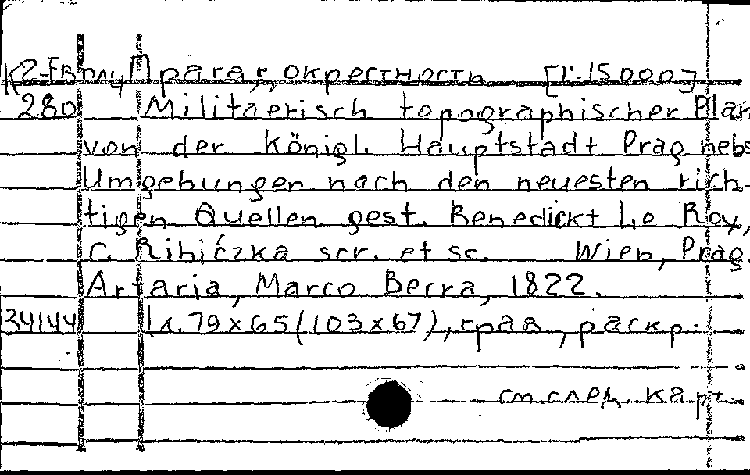 К2-Евпц Прага, окрестность [1:15000]
280 Militaerisch topographischer Plan
von der königl. Hauptstadt Prag nebs
Umgebungen nach den neuesten rich-
tigen Quellen gest. Benedickt Le Roy,
C. Ribiczka scr. et sc. Wien, Prag.
Artaria, Marco Berra, 1822.
34144 1л. 79x65(103x67), грав, раскр.
см. след. карт.